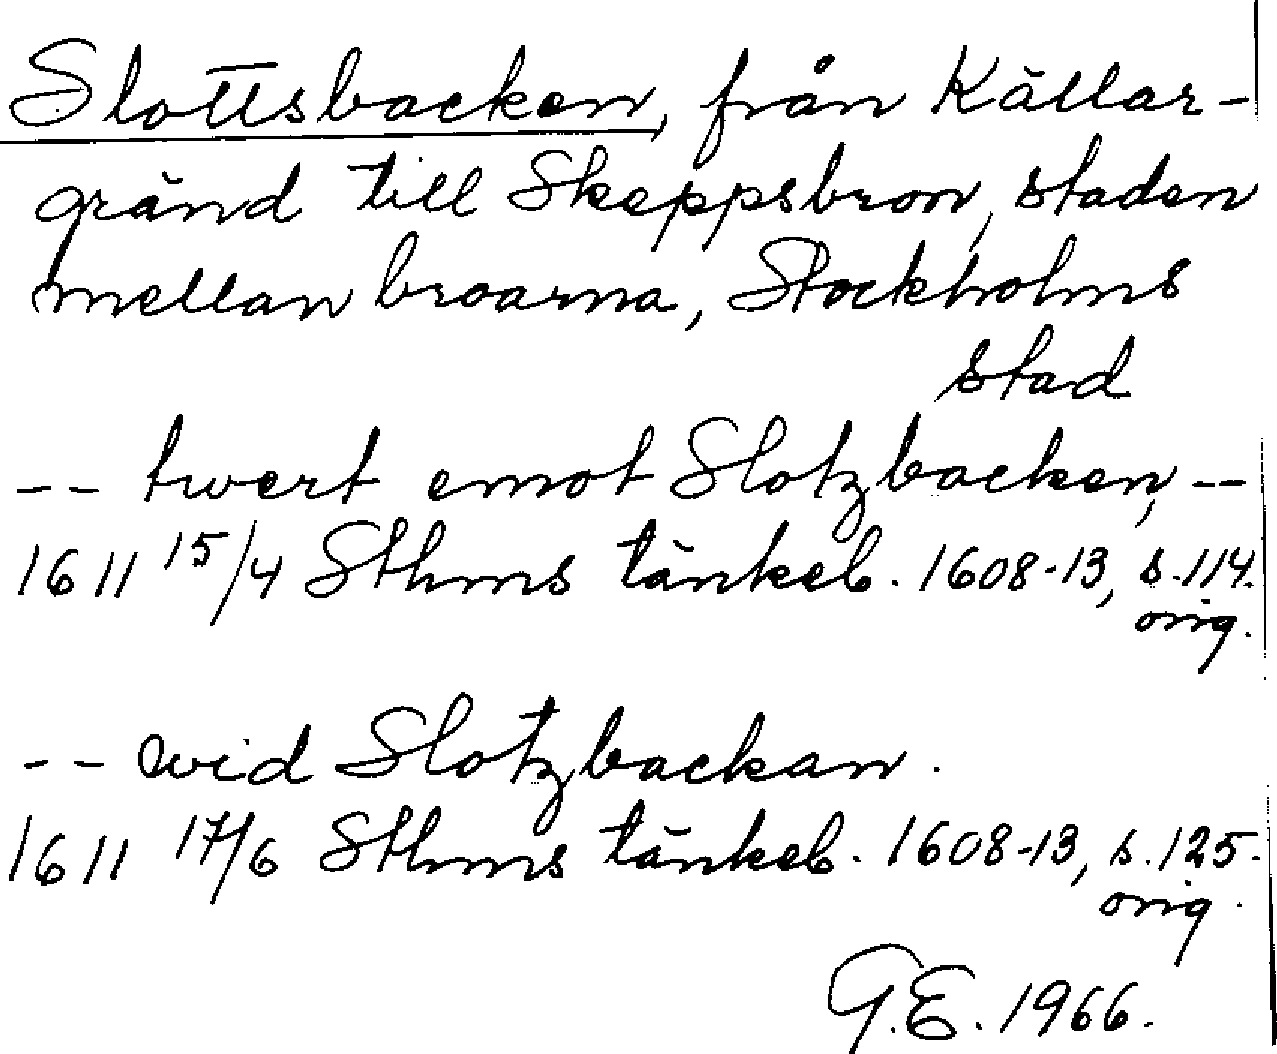 Slottsbacken, från Källar-
gränd till Skeppsbron, staden
mellan broarna, Stockholms
stad
-- twert emot Slotzbacken, --
1611 15/4 Sthms tänkeb. 1608-13, s. 114.
orig.
-- wid Slotzbackan.
1611 17/6 Sthms tänkeb. 1608-13, s. 125.
orig.
G.E. 1966.